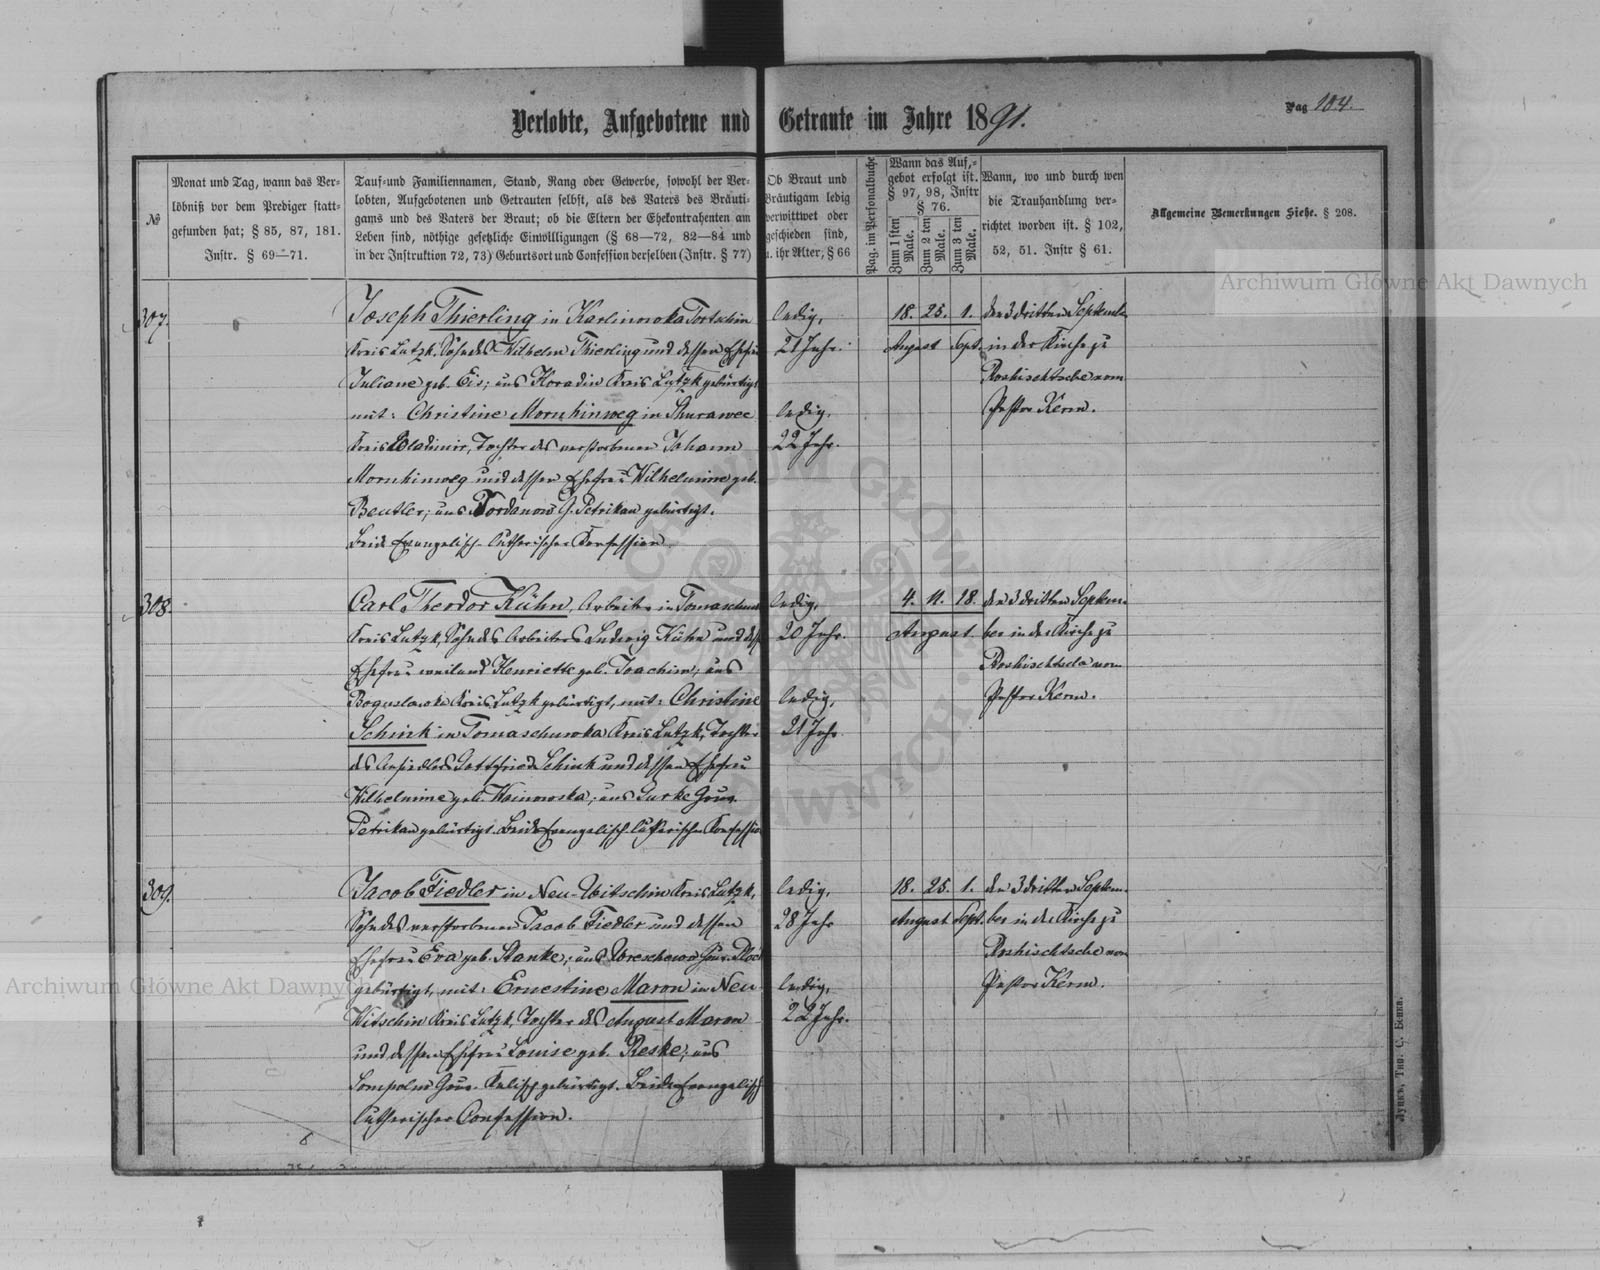 Verlobte, Aufgebotene und Getraute im Jahre 1891.
Pag 104.
№
Monat und Tag, wann das Ver-
löbniß vor dem Prediger statt-
gefunden hat; § 85, 87, 181.
Instr. § 69—71.
Tauf-und Familiennamen, Stand, Rang oder Gewerbe, sowohl der Ver-
lobten, Aufgebotenen und Getrauten selbst, als des Vaters des Bräuti-
gams und des Vaters der Braut; ob die Eltern der Ehekontrahenten am
Leben sind, nöthige gesetzliche Einwilligungen (§ 68—72, 82—84 und
in der Instruktion 72, 73) Geburtsort und Confession derselben (Instr. § 77)
Ob Braut und
Bräutigam ledig
verwittwet oder
geschieden sind,
u. ihr Alter; § 66
Pag. im Personalbuche
Wann das Auf,=
gebot erfolgt ist.
§ 97, 98, Instr
§ 76.
Zum 1sten Male.
Zum 2 ten Male.
Zum 3 ten Male.
Wann, wo und durch wen
die Trauhandlung ver-
richtet worden ist. § 102,
52, 51. Instr § 61.
Allgemeine Bemerkungen Siehe. § 208.
307.
Joseph Thierling in Karlinowka Tortschin
Kreis Lutzk, Sohn des Wilhelm Thierling und dessen Ehefrau
Juliane geb. Eis; aus Horadin Kreis Lutzk gebürtigt
mit: Christine Mornhinweg in Shurawec
Kreis Wladimir, Tochter des verstorbenen Johann
Mornhinweg und dessen Ehefrau Wilhelmine geb.
Beutler; aus Jordanow G. Petrikau gebürtigt.
Beide Evangelisch-lutherischer Konfession
ledig,
21 Jahr.
ledig,
22 Jahr.
18. 25. 1.
August Sept.
den 3 dritten September
in der Kirche zu
Roshischtsche vom
Pastor Kerm.
308.
Carl Theodor Kühn, Arbeiter in
Kreis Lutzk, Sohn des Arbeiters Ludwig Kühn und dess
Ehefrau weiland Henriette geb. Joachim; aus
Boguslawka Kreis Lutzk gebürtigt, mit: Christine
Schink in Tomaschewka Kreis Lutzk, Tochter
des Ansiedlers Gottfried Schink und dessen Ehefrau
Wilhelmine geb. Woinowska; aus Gurke Gouv.
Petrikau gebürtigt. Beide Evangelisch-lutherischer Konfession
ledig,
20 Jahr.
ledig,
21 Jahr
4. 11. 18.
August.
den 3 dritten Septem-
ber in der Kirche zu
Roshischtsche vom
Pastor Kerm.
309.
Jacob Fiedler in Neu-Witschin Kreis Lutzk,
Sohn des verstorbenen Jacob Fiedler und dessen
Ehefrau Eva geb. Stanke; aus Gouv. Ploc
gebürtigt, mit: Ernestine Maron in Neu
Witschin Kreis Lutzk, Tochter des August Maron
und dessen Ehefrau Louise geb. Reske; aus
Sompolno Gouv. Kalisch gebürtigt. Beide Evangelisch
lutherischer Confession.
ledig,
28 Jahr
ledig,
22 Jahr.
18. 25. 1.
August Sept.
den 3 dritten Septem-
ber in der Kirche zu
Roshischtsche vom
Pastor Kerm.
Archiwum Główne Akt Dawnych
Archiwum Główne Akt Dawnych